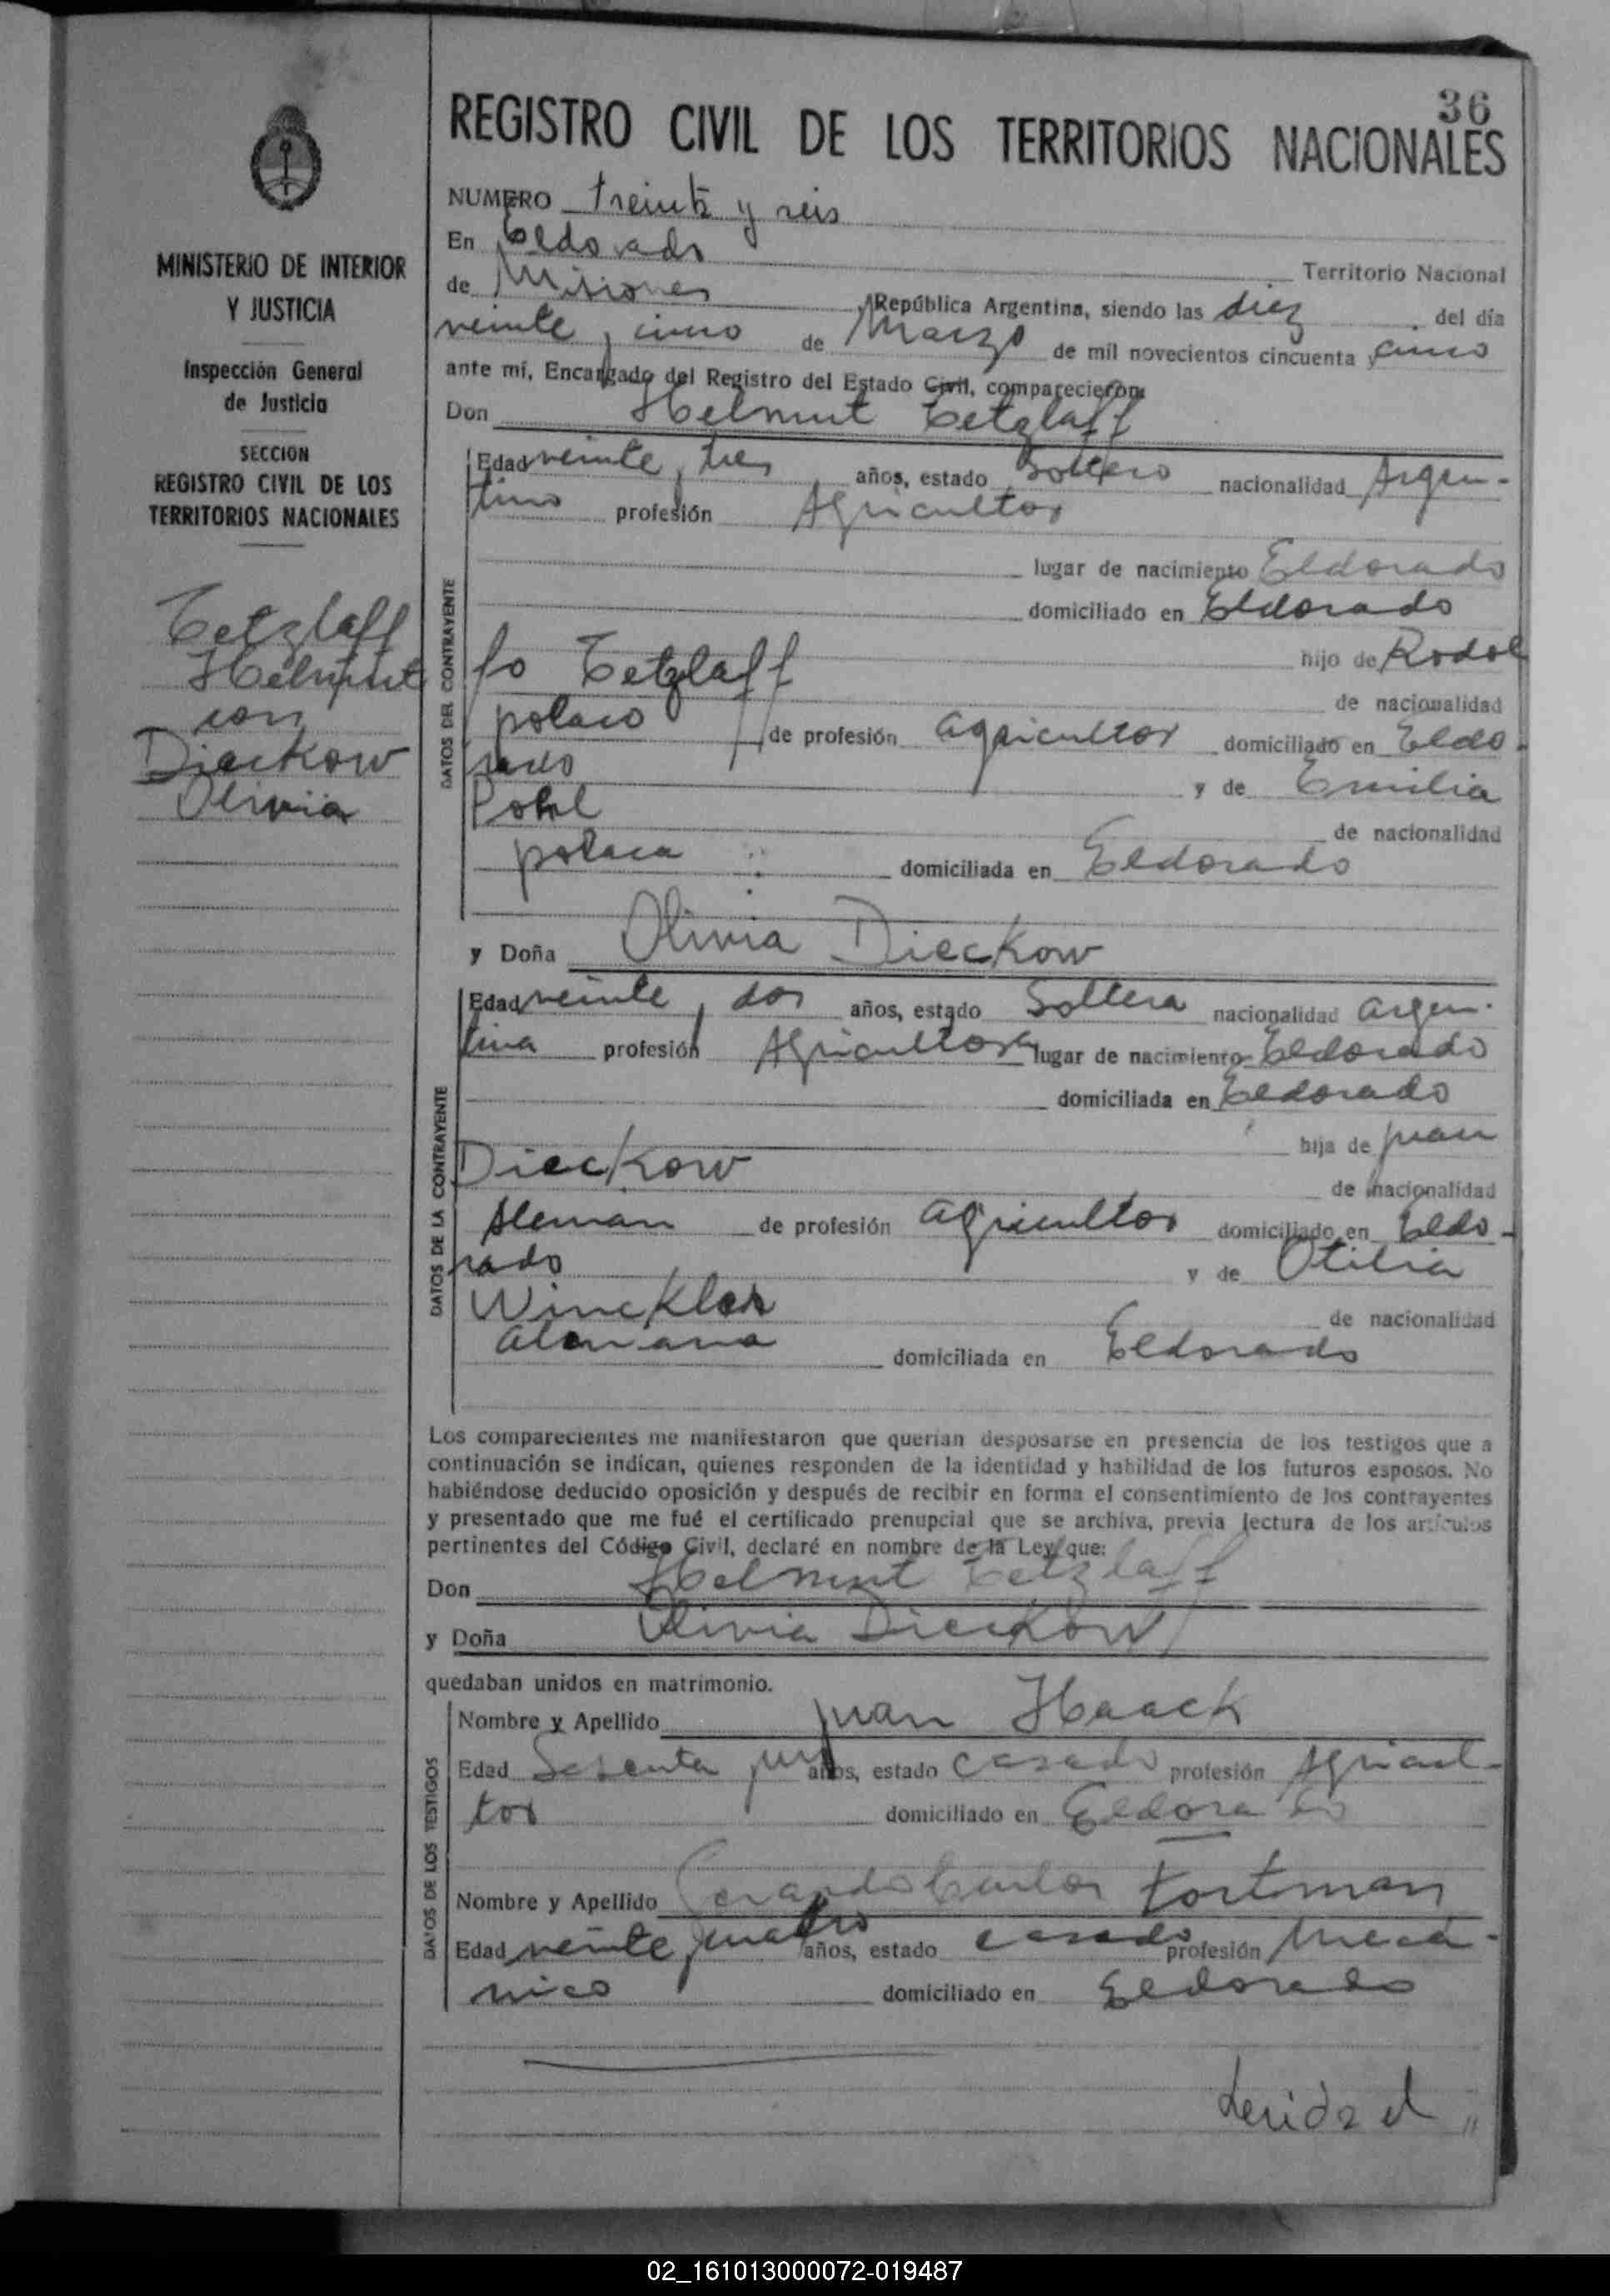 36
REGISTRO CIVIL DE LOS TERRITORIOS NACIONALES
MINISTERIO DE INTERIOR
Y JUSTICIA
Inspección General
de Justicia
SECCION
REGISTRO CIVIL DE LOS
TERRITORIOS NACIONALES
Tetzlaff
Helmut
con
Dieckow
Olivia
NUMERO treinta y seis
En Eldorado Territorio Nacional
de Misiones, República Argentina, siendo las diez del día
veinte y cinco de Marzo de mil novecientos cincuenta y cinco
ante mí, Encargado del Registro del Estado Civil, comparecieron:
Don Helmut Tetzlaff
DATOS DEL CONTRAYENTE
Edad veinte y tres años, estado Soltero nacionalidad Argen-
tino profesión Agricultor
lugar de nacimiento Eldorado
domiciliado en Eldorado
hijo de Rodol
fo Tetzlaff
de nacionalidad
polaco de profesión agricultor domiciliado en Eldo-
rado
y de Emilia
Pohl
de nacionalidad
polaca domiciliada en Eldorado
y Doña Olivia Dieckow
DATOS DE LA CONTRAYENTE
Edad veinte y dos años, estado Soltera nacionalidad argen-
tina profesión Agricultora lugar de nacimiento Eldorado
domiciliada en Eldorado
hija de Juan
Dieckow
de nacionalidad
Aleman de profesión agricultor domiciliado en Eldo-
rado
y de Otilia
Winckler
de nacionalidad
alemana domiciliada en Eldorado
Los comparecientes me manifestaron que querían desposarse en presencia de los testigos que a
continuación se indican, quienes responden de la identidad y habilidad de los futuros esposos. No
habiéndose deducido oposición y después de recibir en forma el consentimiento de los contrayentes
y presentado que me fué el certificado prenupcial que se archiva, previa lectura de los artículos
pertinentes del Código Civil, declaré en nombre de la Ley que:
Don Helmut Tetzlaff
y Doña Olivia Dieckow
quedaban unidos en matrimonio.
DATOS DE LOS TESTIGOS
Nombre y Apellido Juan Haack
Edad años, estado casado profesión Agricul-
tor domiciliado en Eldorado
Nombre y Apellido Carlos Fortman
Edad veinte y cuatro años, estado casado profesión Mecá-
nico domiciliado en Eldorado
Leida el
02_161013000072-019487